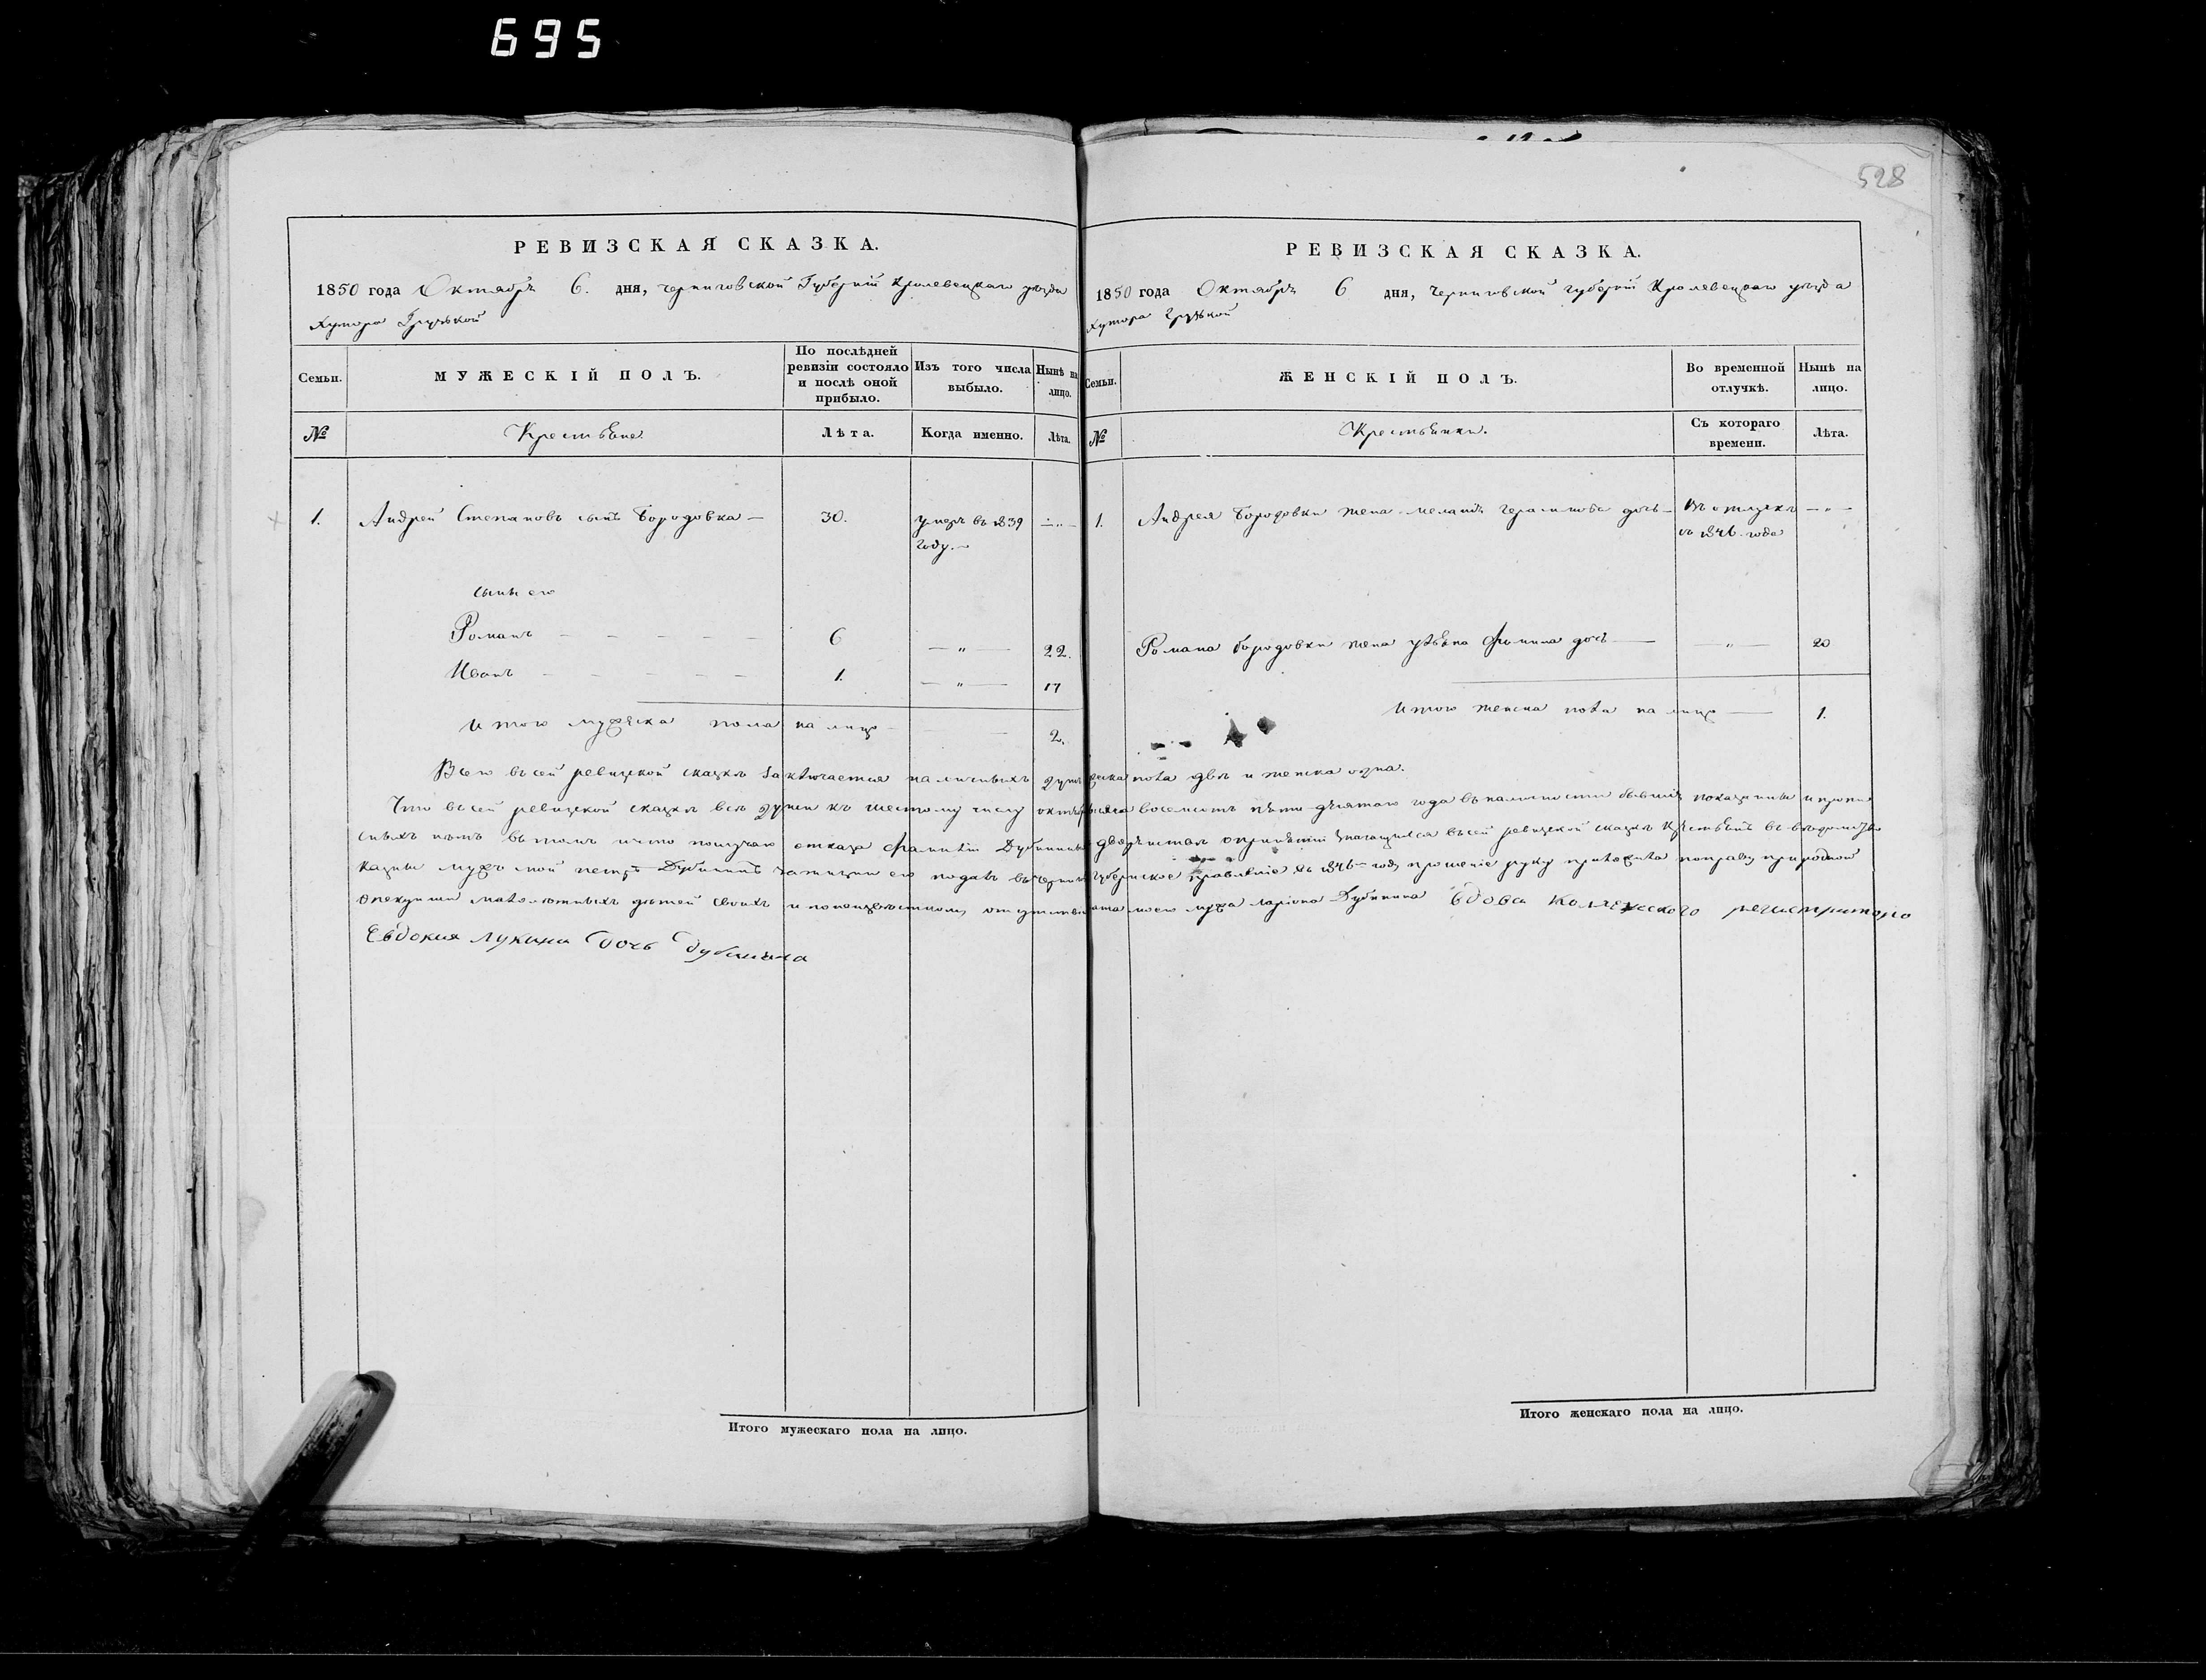 695
528
РЕВИЗСКАЯ СКАЗКА.
1850 года Октября 6. дня, Черниговской Губерніи Кролевецкаго уѣзда
Хутора Грузской
Семьи.
МУЖЕСКІЙ ПОЛЪ.
По послѣдней ревизіи состояло и послѣ оной прибыло.
Изъ того числа выбыло.
Нынѣ на лицо.
№
Крестьяне.
Лѣта.
Когда именно.
Лѣта.
1. Андрей Степановъ сынъ Бородовка — 30. умеръ въ 1839 — „ —
году. —
сыны его
Романъ — — — — — 6 — „ — 22.
Иванъ — — — — — 1. — „ — 17
Итого мужеска пола на лицо — 2.
РЕВИЗСКАЯ СКАЗКА.
1850 года Октября 6 дня, Черниговской Губерніи Кролевецкаго уѣзда
Хутора Грузской
Семьи.
ЖЕНСКІЙ ПОЛЪ.
Во временной отлучкѣ.
Нынѣ на лицо.
№
Крестьянки.
Съ котораго времени.
Лѣта.
1. Андрея Бородовки жена Меланія Герасимова дочь — Въ отлучкѣ — „ —
съ 1846 года
Романа Бородовки жена Ульяна Фомина дочь — — „ — 20
Итого женска пола на лицо — 1.
Всего въ сей ревизской сказкѣ заключается наличныхъ душъ мужеска пола двѣ и женска одна.
Что въ сей ревизской сказкѣ всѣ души къ шестому числу октября восемсотъ пятьдесятаго года въ наличности бывшія показаны и пропи
сныхъ нѣтъ въ томъ и что фамиліи въ сей ревизской сказкѣ крестьянъ въ вѣдомство
казны мужъ мой Дубининъ подалъ въ Черниг. Губернское правленіе въ 1846 году прошеніе руку приложила по праву природной
опекунши малолѣтныхъ дѣтей своихъ моего мужа Ларіона Дубинина Вдова Коллежского регистратора
Евдокия Лукина Дочь Дубинина
Итого мужескаго пола на лицо.
Итого женскаго пола на лицо.